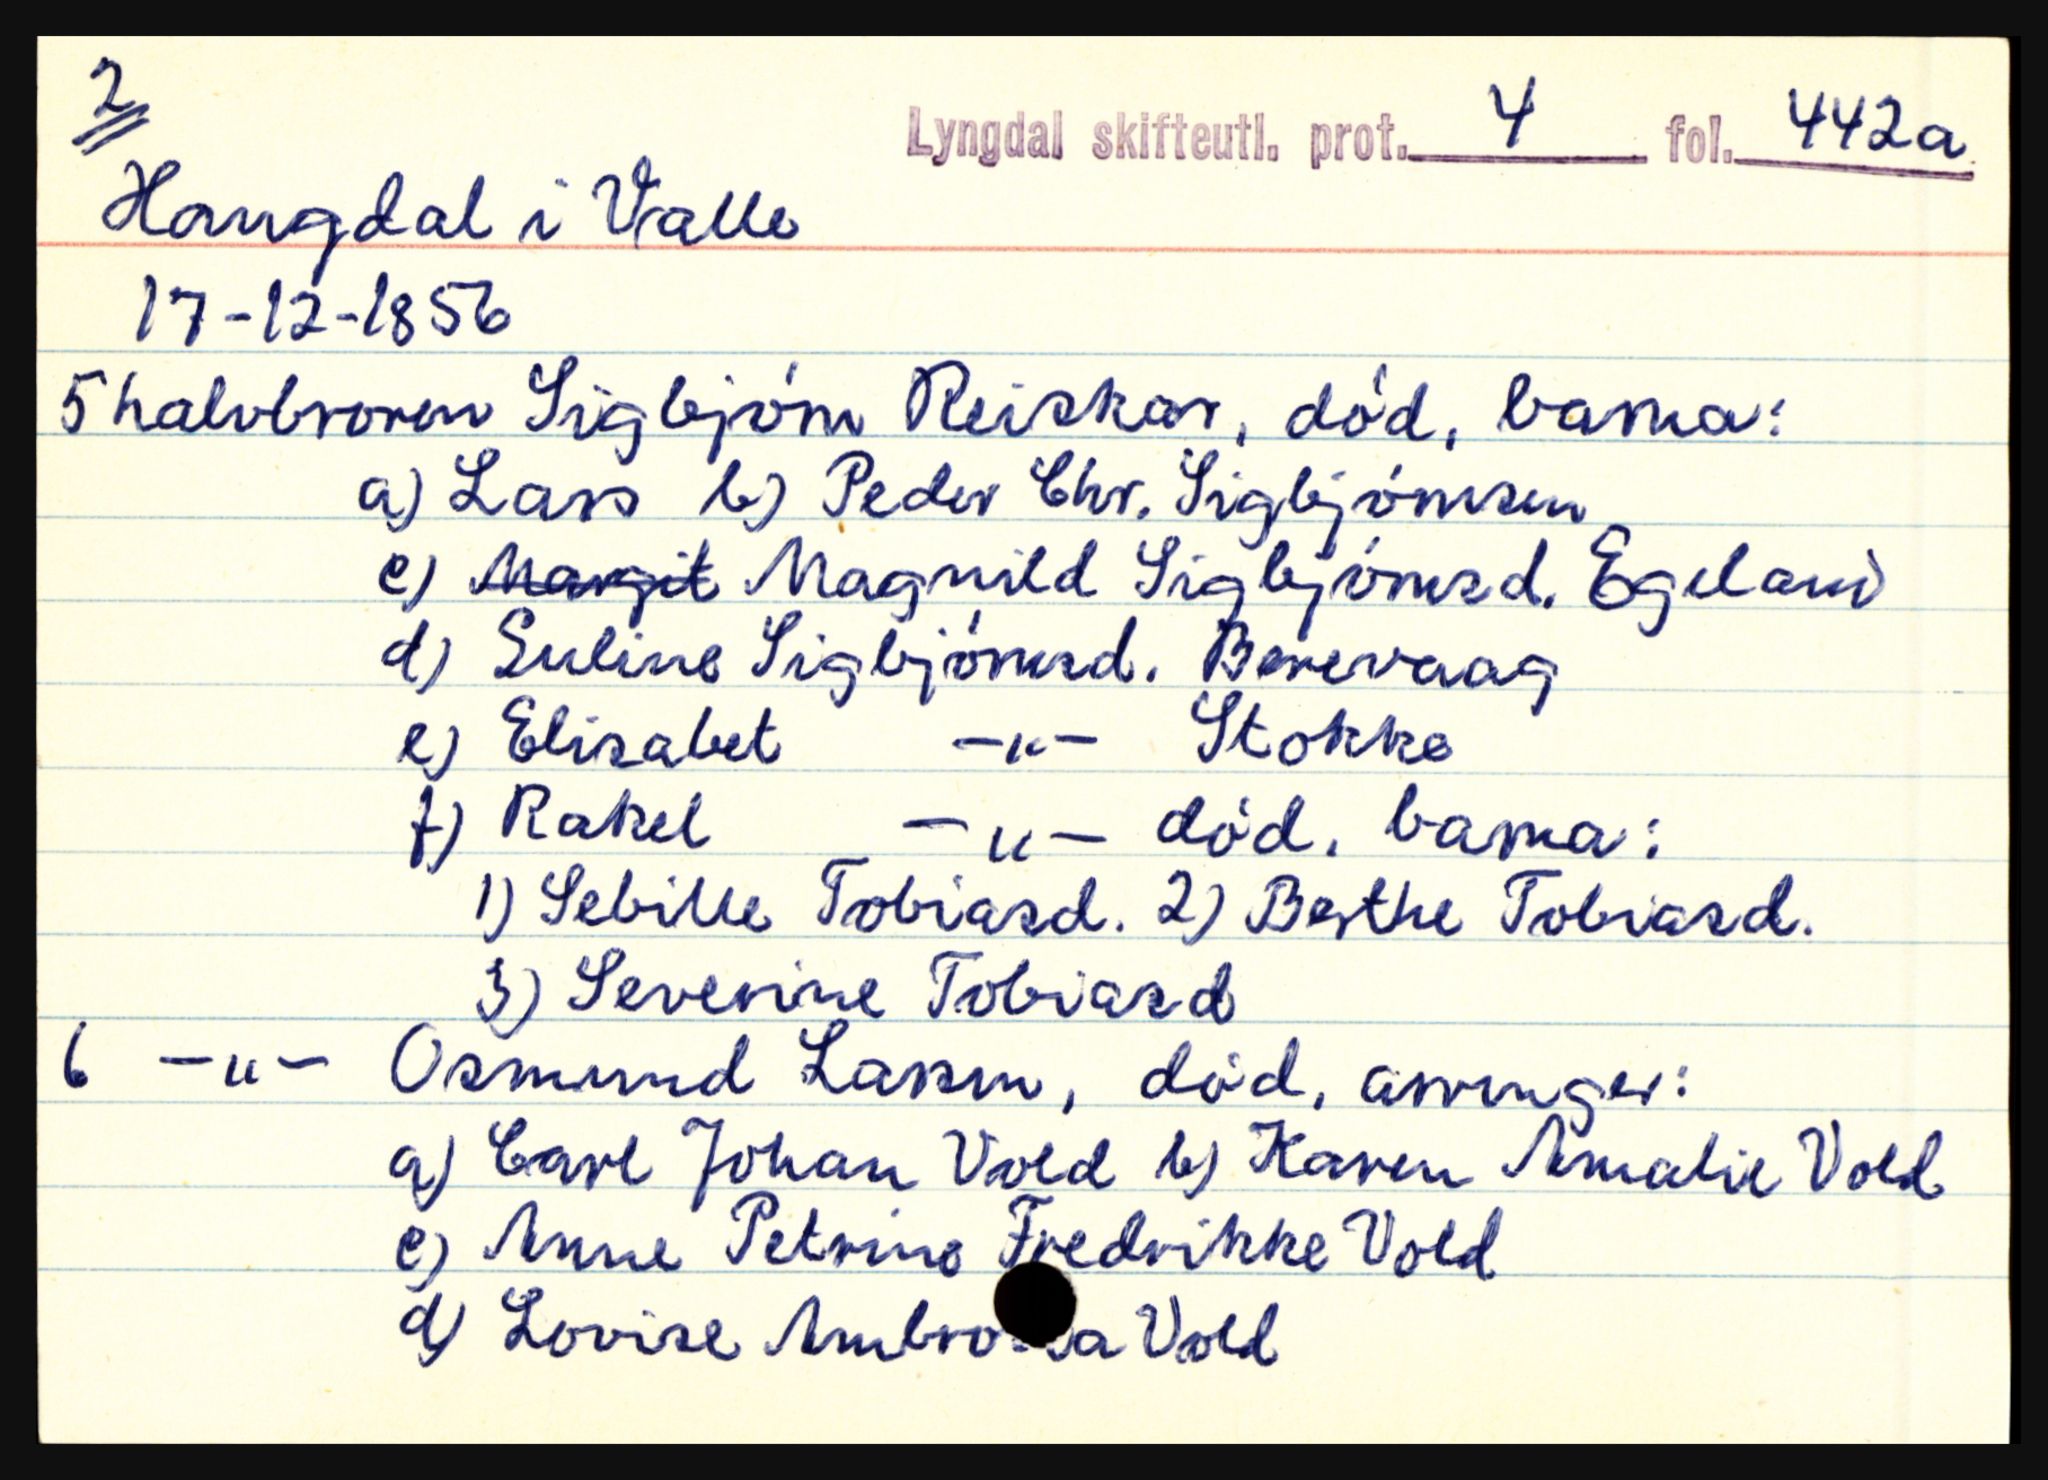 2
Lyngdal skifteutl. prot. 4 fol. 442a
Haugdal i Valle
17-12-1856
5 halvbroren Sigbjørn Reiskar, død, barna:
a) Lars b) Peder Chr. Sigbjørnsen
c) Margit Magnild Sigbjørnsd. Egeland
d) Euline Sigbjørnsd. Berevaag
e) Elisabet -"- Stokke
f) Rakel -"- død. barna:
1) Sebille Tobiasd. 2) Berthe Tobiasd.
3) Severine Tobiasd
6 -"- Osmund Larsen, død, arvinger:
a) Carl Johan Vold b) Karen Amalie Vold
c) Anne Petrine Fredrikke Vold
d) Lovise Vold